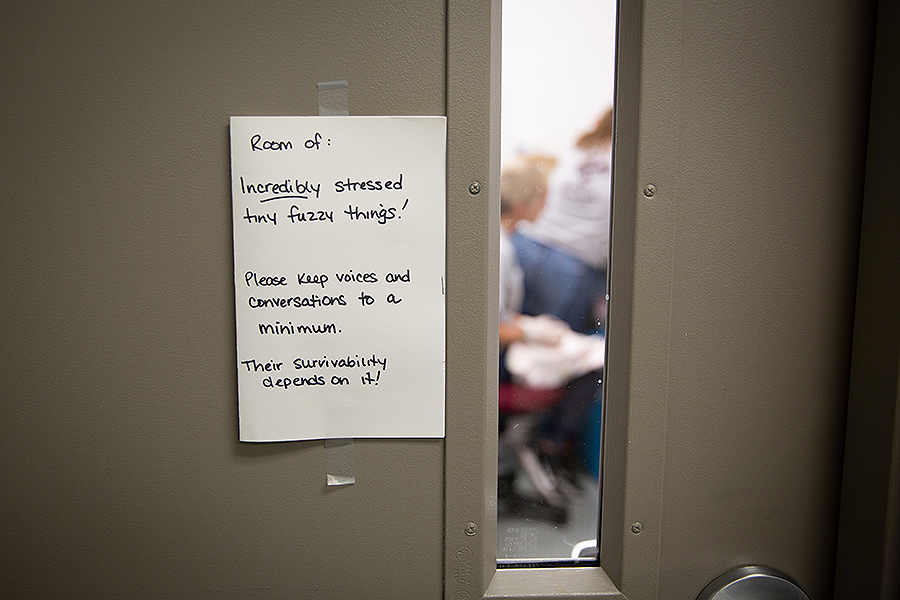 Room of:
Incredibly stressed
tiny fuzzy things!
Please keep voices and
conversations to a
minimum.
Their survivability
depends on it!